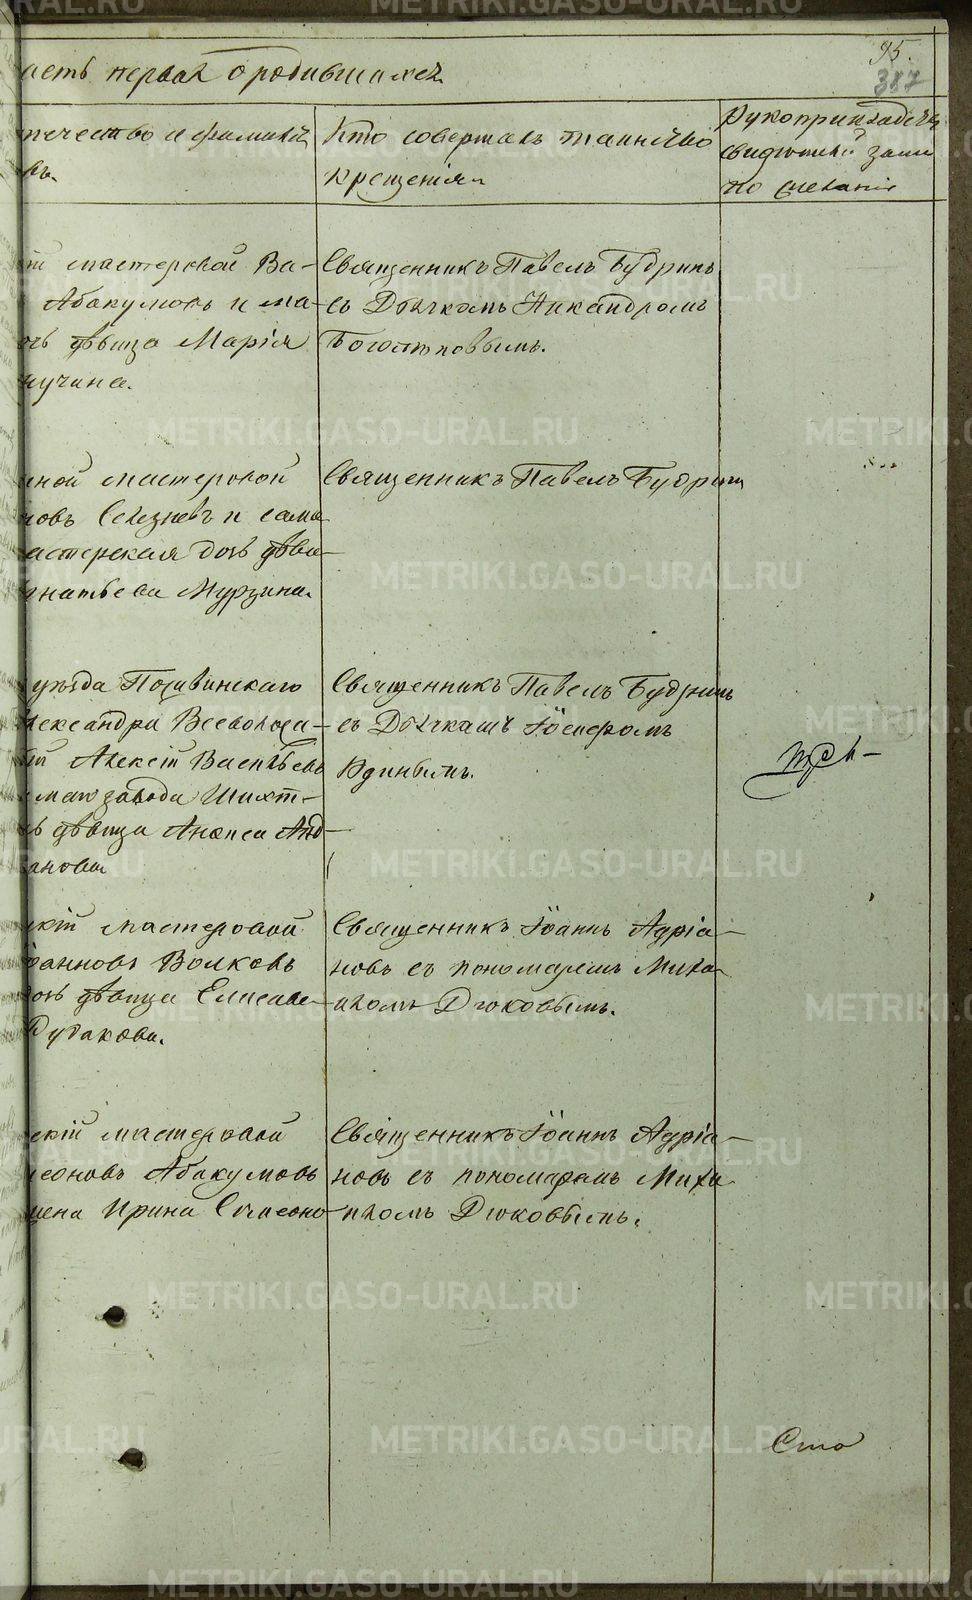 95.
387
асть первая о родившихся
течество и фамилія
Кто совершалъ таинство
крещенія
Рукоприкладство
свидѣтелей запи
по желанію
мастеровой Ва-
Абакумовъ и
дѣвица Марія
Священникъ Павелъ Будринъ
съ Дьячкомъ Никандромъ
Боголѣповымъ.
ной мастеровой
Селезневъ и
астерская дочь дѣви-
гнатьева Мурзина.
Священникъ Павелъ Будринъ
уѣзда Пожвинскаго
лександра Всеволожс-
Алексѣй Васильевъ
завода Шихт-
дѣвица Анфиса Анд-
анова
Священникъ Павелъ Будринъ
съ Дьячкомъ Іосифомъ
Юдинымъ.
скій мастеровой
оанновъ Волковъ
очь дѣвица Елисаве-
Рудакова.
Священникъ Іоаннъ Адріа-
новъ съ пономаремъ Миха-
иломъ Дюковымъ.
скій мастеровой
еоновъ Абакумовъ
жена Ирина Симеоно-
Священникъ Іоаннъ Адріа-
новъ съ пономаремъ Миха
иломъ Дюковымъ.
Сто
METRIKI.GASO-URAL.RU